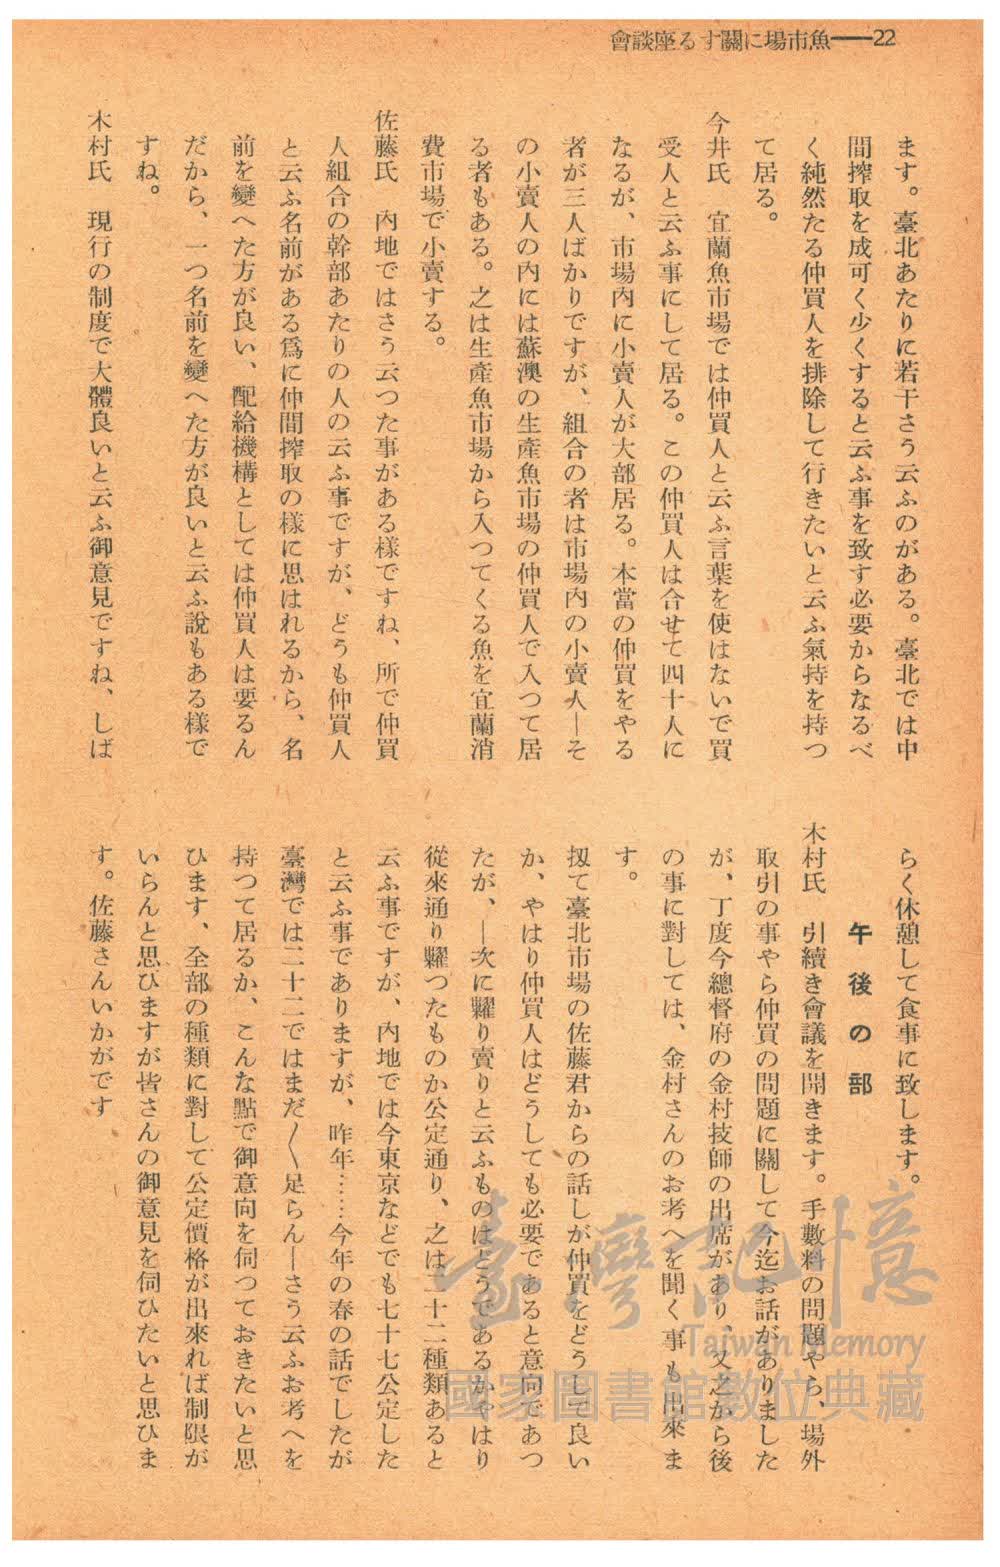 22——魚市場に關する座談會
ます。臺北あたりに若干さう云ふのがある。臺北では中
間搾取を成可く少くすると云ふ事を致す必要からなるべ
く純然たる仲買人を排除して行きたいと云ふ氣持を持つ
て居る。
今井氏　宜蘭魚市場では仲買人と云ふ言葉を使はないで買
受人と云ふ事にして居る。この仲買人は合せて四十人に
なるが、市場內に小賣人が大部居る。本當の仲買をやる
者が三人ばかりですが、組合の者は市場內の小賣人—そ
の小賣人の內には蘇澳の生產魚市場の仲買人で入つて居
る者もある。之は生產魚市場から入つてくる魚を宜蘭消
費市場で小賣する。
佐藤氏　內地ではさう云つた事がある樣ですね、所で仲買
人組合の幹部あたりの人の云ふ事ですが、どうも仲買人
と云ふ名前がある爲に仲間搾取の樣に思はれるから、名
前を變へた方が良い、配給機構としては仲買人は要るん
だから、一つ名前を變へた方が良いと云ふ說もある樣で
すね。
木村氏　現行の制度で大體良いと云ふ御意見ですね、しば
らく休憩して食事に致します。
午後の部
木村氏　引續き會議を開きます。手數料の問題やら、場外
取引の事やら仲買の問題に關して今迄お話がありました
が、丁度今總督府の金村技師の出席があり、又之から後
の事に對しては、金村さんのお考へを聞く事も出來ま
す。
扨て臺北市場の佐藤君からの話しが仲買をどうして良い
か、やはり仲買人はどうしても必要であると意向であつ
たが、—次に糶り賣りと云ふものはどうであるかやはり
從來通り糶つたものか公定通り、之は二十二種類あると
云ふ事ですが、內地では今東京などでも七十七公定した
と云ふ事でありますが、昨年……今年の春の話でしたが
臺灣では二十二ではまだ〱足らん—さう云ふお考へを
持つて居るか、こんな點で御意向を伺つておきたいと思
ひます、全部の種類に對して公定價格が出來れば制限が
いらんと思ひますが皆さんの御意見を伺ひたいと思ひま
す。佐藤さんいかがです
臺灣記憶
Taiwan Memory
國家圖書館數位典藏